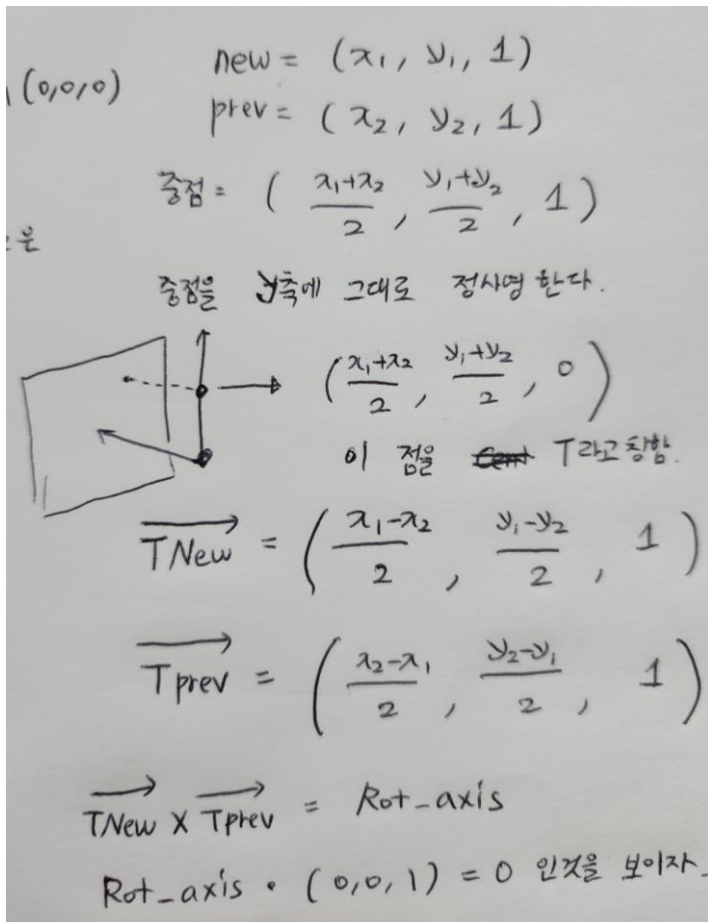 new = (x₁, y₁, 1)
(0,0,0)
prev = (x₂, y₂, 1)
중점 = ( (x₁+x₂)/2 , (y₁+y₂)/2 , 1 )
은
중점을 y축에 그대로 정사영 한다.
( (x₁+x₂)/2 , (y₁+y₂)/2 , 0 )
이 점을 T라고 칭함.
→TNew = ( (x₁-x₂)/2 , (y₁-y₂)/2 , 1 )
→Tprev = ( (x₂-x₁)/2 , (y₂-y₁)/2 , 1 )
→TNew × →Tprev = Rot_axis
Rot_axis · (0,0,1) = 0 인것을 보이자.